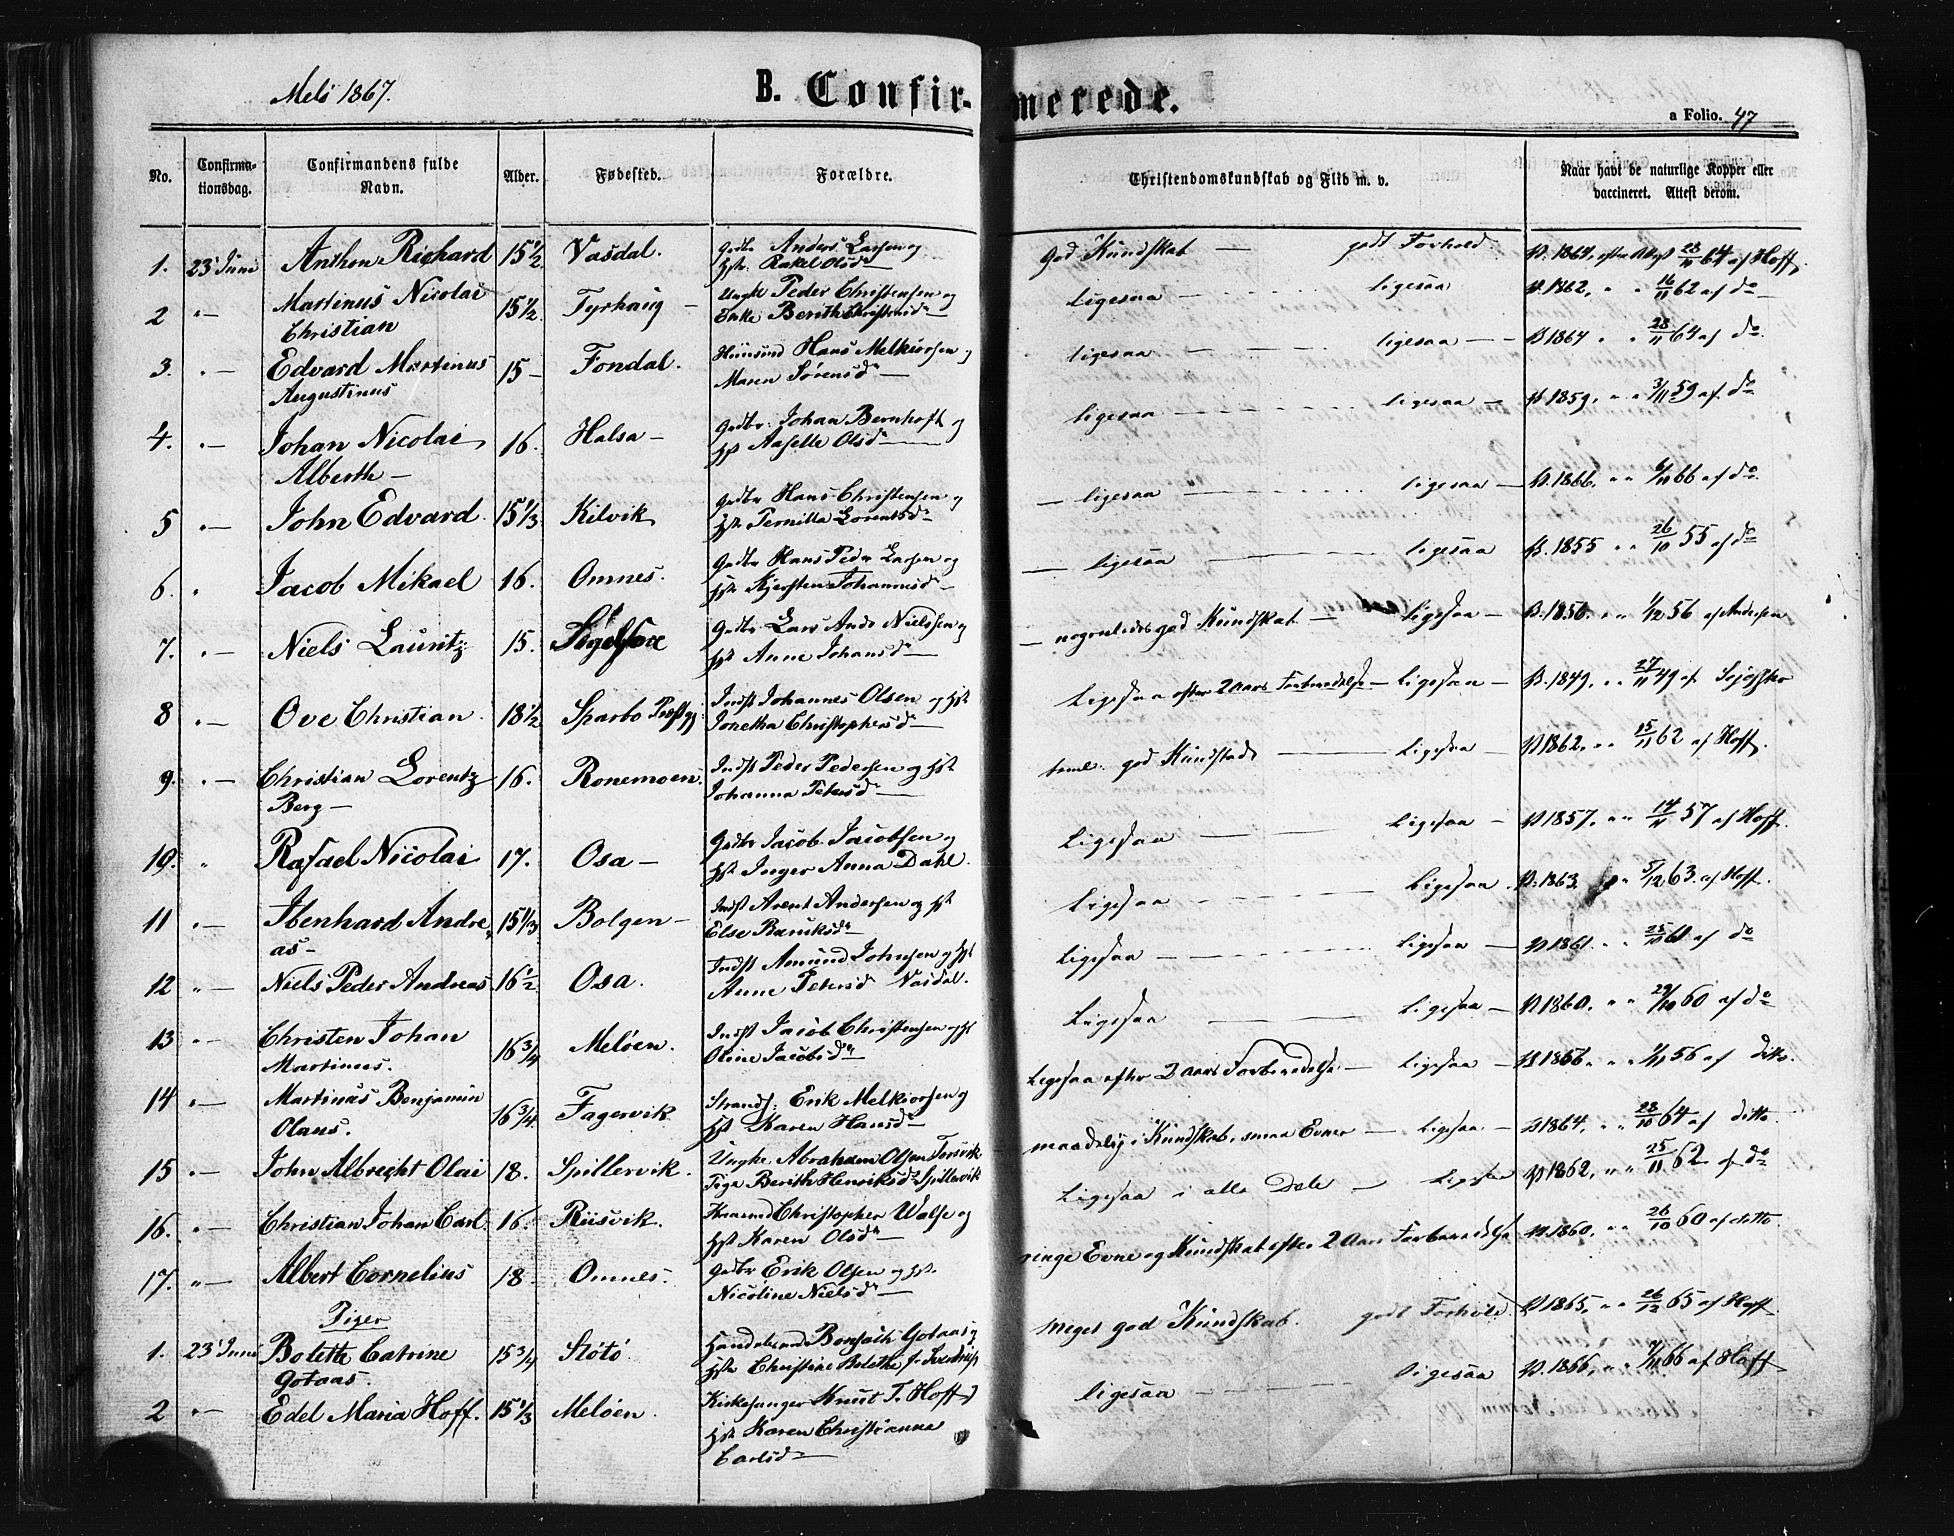 Melö 1867.
B. Confirmerede.
a Folio. 47
No. Confirmationsdag. Confirmandens fulde Navn. Alder. Fødested. Forældre. Christendomskundskab og Flid m. v. Naar havt de naturlige Kopper eller vaccineret. Attest derom.
1. 23 Juni Anthon Richard 15 1/2 Vasdal. Gdbr Anders Larsen og God Kundskab — godt Forhold V. 1864, efter Attest 28/11 64 af Hoff.
Hst. Rakel Olsd
2 "— Martinus Nicolai 15 1/2 Tyrhaug — Ungk Peder Christensen og ligesaa — ligesaa V. 1862, " " 16/11 62 af do
Christian Enke Berith
3. "— Edvard Martinus 15 — Fondal. Huusmd Hans Melkiorsen og ligesaa — ligesaa — V 1864 " " 28/11 64 af do.
Augustinus Maren Sörensd
4. "— Johan Nicolai 16. Halsa — Gdbr. Johan Bernhoft og ligesaa — ligesaa — V. 1859. " " 3/11 59 af do
Alberth — Hst Olsd
5 "— John Edvard 15 1/3 Kilvik Gdbr Hans Christensen og — ligesaa — ligesaa — V. 1866. " " 6/11 66 af do
Hst. Pernilla Lorentsd
6. " Jacob Mikael 16. Omnes. Gdbr Hans Pedr Larsen og — ligesaa — ligesaa V. 1855 " " 26/10 55 af do
Hst. Kjersten Johannesd
7. "— Niels Lauritz 15. Gdbr Lars Nielssen og — nogenledes god Kundskab. — Ligesaa — V. 1856. " " 1/12 56 af Andersen
Hst Anne Johansd
8 "— Ove Christian 18 1/2 Sparbo Indst Johannes Olsen og Hst Ligesaa efter 2 Aars Forberedelse — Ligesaa — V. 1849. " " 27/11 49 af
Jonetha Christophersd
9. "— Christian Lorentz 16. Ronemoen. Indst Peder Pedersen og Hst god Kundskab — Ligesaa — V 1862. " " 15/11 62 af Hoff.
Berg — Johanna Petersd
10. " Rafael Nicolai 17. Osa — Gdbr Jacob Jacobsen og Ligesaa — Ligesaa — V 1857. " " 14/11 57 af Hoff.
Hst Inger Anna Dahl.
11 "— Ibenhard Andre- 15 1/3 Bolgen — Indst Arent Andersen og Hst Ligesaa — Ligesaa. V. 1863. " 5/12 63. af Hoff.
as — Else
12 "— Niels Peder Andreas 16 1/2 Osa. Indst Amund Johnsen og Hst Ligesaa — Ligesaa — V 1861. " " 25/10 61 af do
Anne Petersd Vasdal.
13 "— Christen Johan 16 3/4 Melöen. Indst Jacob Christensen og Hst Ligesaa — Ligesaa — V 1860. " " 29/10 60 af do
Martinus. Oline Jacobsd
14 "— Martinus Benjamin 16 3/4 Fagervik Strands. Erik Melkiorsen og Ligesaa efter 2 aars Forberedelse — Ligesaa — V 1856 " " 1/11 56 af ditto.
Olaus. Hst Karen Hansd
15 "— John Albrecht Olai 18. Spillervik. Ungke Abraham Olsen Torsvik maadelig i Kundskab, smaa Evner — Ligesaa — V 1864. " " 28/10 64 af ditto
Pige Berith Henriksd Spillervik
16. "— Christian Johan Carl 16. Riisvik. Christopher Walse og Ligesaa i alle Dele — Ligesaa V 1862, " " 25/11 62 af do
Hst Karen Olsd
17. "— Albert Cornelius 18 Omnes. Gdbr Erik Olsen og Hst. ringe Evne og Kundskab efter 2 Aars Forberedelse V 1860. " " 26/10 60 af ditto
Nicoline Nielsd
Piger
1. 23 Juni Bolette Catrine 15 3/4 Stötö Handelsmd Gotaas og Meget god Kundskab. godt Forhold. V 1865, " " 26/12 65 af Hoff
Gotaas. Hst Christine Bolethe J.
2 "— Edel Maria Hoff. 15 1/3 Melöen. Kirkesanger Knut T. Hoff og ligesaa — ligesaa V. 1866, " " 66 af Hoff
Hst Karen Christianne
Carlsd